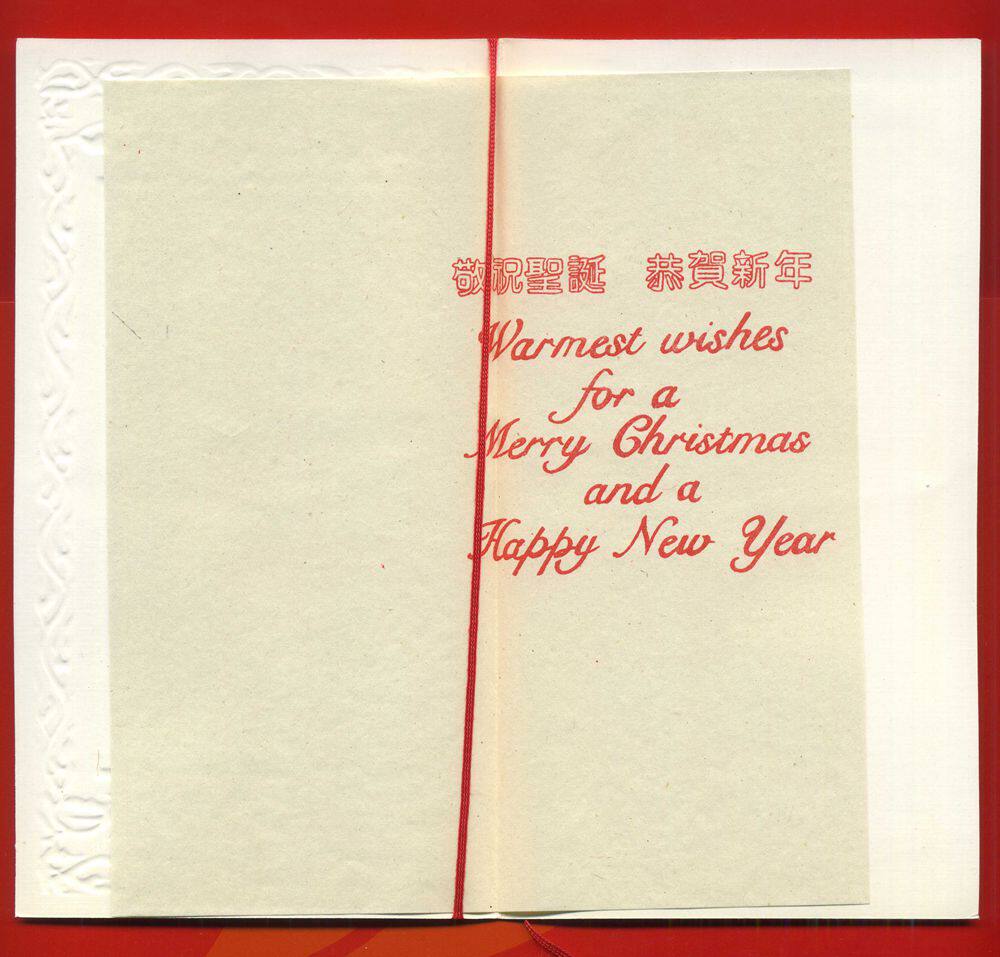 敬祝聖誕 恭賀新年
Warmest wishes
for a
Merry Christmas
and a
Happy New Year